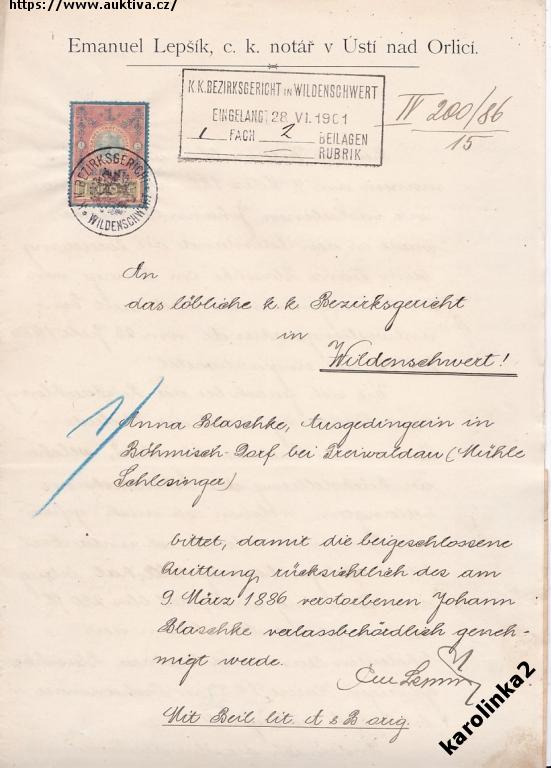 https://www.auktiva.cz/
Emanuel Lepšík, c. k. notář v Ústí nad Orlicí.
K.K. BEZIRKSGERICHT IN WILDENSCHWERT
EINGELANGT 28 VI. 1901
1 FACH 2 BEILAGEN
RUBRIK
IV 200/86
15
1
BEZIRKSGERICHT
WILDENSCHWERT
An
das löbliche k. k. Bezirksgericht
in
Wildenschwert!
Anna Blaschke, Ausgedingerin in
Böhmisch-Dorf bei Freiwaldau (Mühle
Schlesinger)
bittet, damit die beigeschlossene
Quittung rücksichtlich des am
9. März 1886 verstorbenen Johann
Blaschke verlassbehördlich geneh-
migt werde.
Mit Beil. lit. A & B orig.
karolinka2